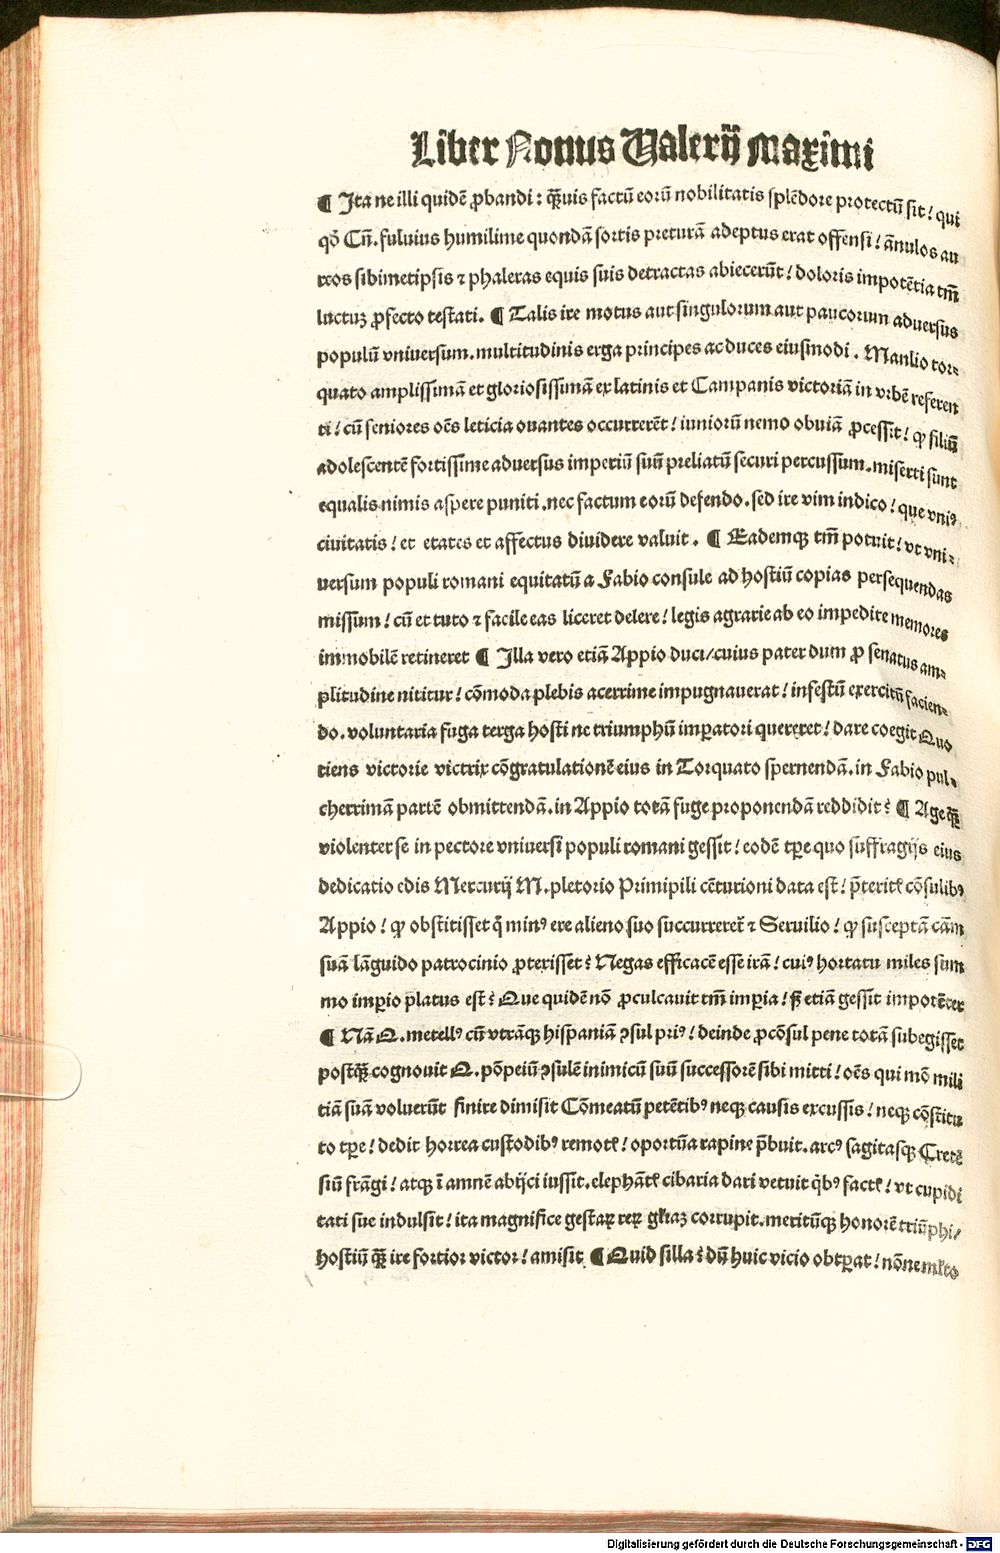 Liber Nonus Valerij Maximi
¶ Ita ne illi quidē ꝓbandi : q̃uis factū eorū nobilitatis splēdore protectū sit / qui
qꝙ Cñ. fuluius humilime quondā sortis preturā adeptus erat offensi / ānulos au
reos sibimetipsis ⁊ phaleras equis suis detractas abiecerūt / doloris impotētia tm̄
luctuꝫ ꝓfecto testati. ¶ Talis ire motus aut singulorum aut paucorum aduersus
populū vniuersum. multitudinis erga principes ac duces eiusmodi . Manlio tor⸗
quato amplissimā et gloriosissimā ex latinis et Campanis victoriā in vrbē referen
ti / cū seniores oēs leticia ouantes occurrerēt / iuniorū nemo obuiā ꝓcessit / ꝙ filiū
adolescentē fortissime aduersus imperiū suū preliatū securi percussum. miserti sunt
equalis nimis aspere puniti. nec factum eorū defendo. sed ire vim indico / que vniꝰ
ciuitatis / et etates et affectus diuidere valuit . ¶ Eademqꝫ tm̄ potuit / vt vni⸗
uersum populi romani equitatū a Fabio consule ad hostiū copias persequendas
missum / cū et tuto ⁊ facile eas liceret delere / legis agrarie ab eo impedite memores
immobilē retineret ¶ Illa vero etiā Appio duci/cuius pater dum ꝓ senatus am⸗
plitudine nititur / cōmoda plebis acerrime impugnauerat / infestū exercitū facien⸗
do. voluntaria fuga terga hosti ne triumphū imꝑatori quereret / dare coegit Quo
tiens victorie victrix cōgratulationē eius in Torquato spernendā. in Fabio pul⸗
cherrimā partē obmittendā. in Appio totā fuge proponendā reddidit? ¶ Age q̃ꝫ
violenter se in pectore vniuersi populi romani gessit / eodē tꝑe quo suffragijs eius
dedicatio edis Mercurij M. pletorio Primipili cēturioni data est / p̄teritꝭ cōsulibꝰ
Appio / ꝙ obstitisset q̄ minꝰ ere alieno suo succurreret̄ ⁊ Seruilio / ꝙ susceptā cām
suā lāguido patrocinio ꝓtexisset? Negas efficacē esse irā / cuiꝰ hortatu miles sum
mo imꝑio p̄latus est? Que quidē nō ꝓculcauit tm̄ imꝑia / sꝫ etiā gessit impotēter
¶ Nā Q. metellꝰ cū vtrāqꝫ hispaniā ꝯsul priꝰ / deinde ꝓcōsul pene totā subegisset
postq̃ꝫ cognouit Q. pōpeiū ꝯsulē inimicū suū successorē sibi mitti / oēs qui mō mili
tiā suā voluerūt finire dimisit Cōmeatū petētibꝰ neqꝫ causis excussis / neqꝫ cōstitu
to tꝑe / dedit horrea custodibꝰ remotꝭ / oportūa rapine p̄buit. arcꝰ sagitasqꝫ Cretē
siū frāgi / atqꝫ ī amnē abijci iussit. elephātꝭ cibaria dari vetuit q̄bꝰ factꝭ / vt cupidi
tati sue indulsit / ita magnifice gestaꝝ reꝝ gl̄iaꝫ corrupit. meritūqꝫ honorē triūphi /
hostiū q̃ꝫ ire fortior victor / amisit ¶ Quid silla? dū huic vicio obtꝑat / nōne ml̄to
Digitalisierung gefördert durch die Deutsche Forschungsgemeinschaft - DFG